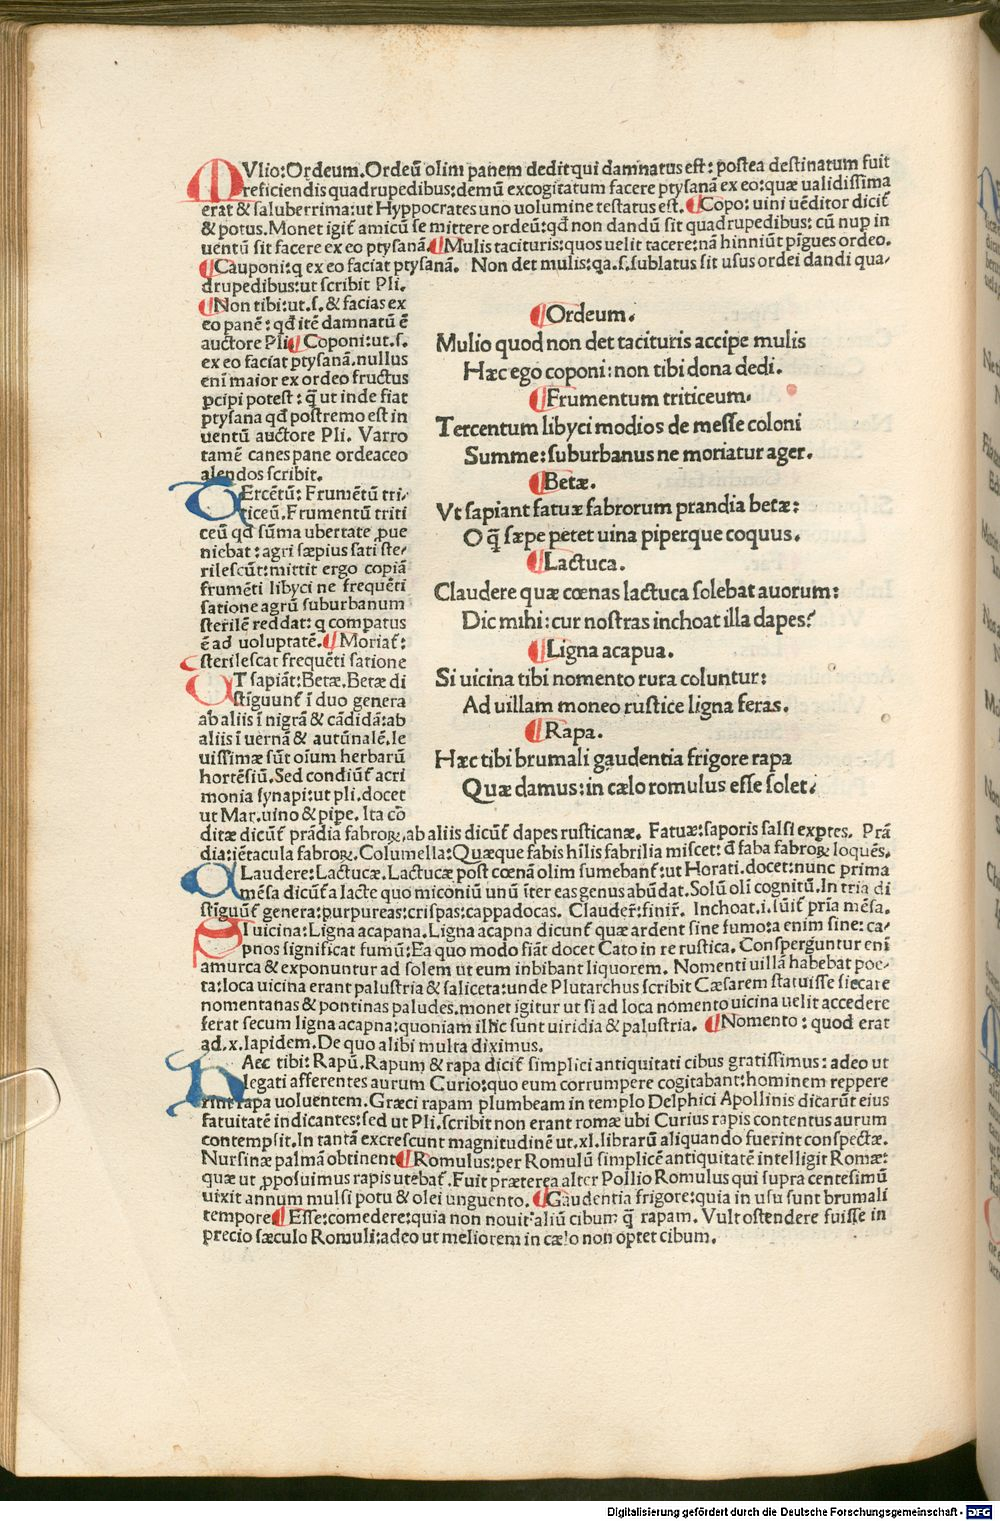 MVlio:Ordeum.Ordeū olim panem dedit qui damnatus est: postea destinatum fuit
reficiendis quadrupedibus:demū excogitatum facere ptysanā ex eo:quæ ualidissima
erat & saluberrima:ut Hyppocrates uno uolumine testatus est. ¶Copo: uini uēditor dicit̄
& potus. Monet igit̄ amicū se mittere ordeū:qd̄ non dandū sit quadrupedibus: cū nup in
uentū sit facere ex eo ptysanā.¶Mulis tacituris:quos uelit tacere:nā hinniūt pīgues ordeo.
¶Cauponi:q ex eo faciat ptysanā. Non det mulis:qa.s.sublatus sit usus ordei dandi qua/
drupedibus:ut scribit Pli.
¶Non tibi:ut.s. & facias ex
eo panē: qd̄ itē damnatū ē
auctore Pli¶Coponi:ut.s.
ex eo faciat ptysanā.nullus
eni maior ex ordeo fructus
ꝑcipi potest: q̄ ut inde fiat
ptysana qd̄ postremo est in
uentū auctore Pli. Varro
tamē canes pane ordeaceo
alendos scribit.
TErcētū: Frumētū tri/
ticeū.Frumentū triti
ceū qd̄ sūma ubertate ꝓue
niebat: agri sæpius sati ste/
rilescūt:mittit ergo copiā
frumēti libyci ne frequēti
satione agrū suburbanum
sterilē reddat: q compatus
ē ad uoluptatē.¶Moriat̄:
sterilescat frequēti satione
VT sapiāt:Betæ.Betæ di
stiguunt̄ ī duo genera
ab aliis ī nigrā & cādidā:ab
aliis ī uernā & autūnalē.le
uissimæ sūt oīum herbarū
hortēsiū.Sed condiūt̄ acri
monia synapi:ut pli.docet
ut Mar.uino & pipe. Ita cō
ditæ dicūt̄ prādia fabroꝝ,ab aliis dicūt̄ dapes rusticanæ. Fatuæ:saporis salsi exptes. Prā
dia:iētacula fabroꝝ.Columella:Quæque fabis hīlis fabrilia miscet: đ faba fabroꝝ loquēs.
CLaudere:Lactucæ.Lactucæ post cœnā olim sumebant̄:ut Horati.docet:nunc prima
mēsa dicūt̄ a lacte quo miconiū unū īter eas genus abūdat.Solū olī cognitū.In tria di
stiguūt̄ genera:purpureas:crispas:cappadocas. Clauder̄:finir̄. Inchoat.i.sūit̄ pria mēsa.
SI uicina:Ligna acapana.Ligna acapna dicunt̄ quæ ardent sine fumo:a enim sine: ca/
pnos significat fumū:Ea quo modo fiāt docet Cato in re rustica. Consperguntur enī
amurca & exponuntur ad solem ut eum inbibant liquorem. Nomenti uillā habebat poe/
ta:loca uicina erant palustria & saliceta:unde Plutarchus scribit Cæsarem statuisse siccare
nomentanas & pontinas paludes.monet igitur ut si ad loca nomento uicina uelit accedere
ferat secum ligna acapna:quoniam illic sunt uiridia & palustria. ¶Nomento: quod erat
ad.x.lapidem. De quo alibi multa diximus.
HAec tibi: Rapū.Rapum & rapa dicit̄ simplici antiquitati cibus gratissimus: adeo ut
legati afferentes aurum Curio:quo eum corrumpere cogitabant:hominem reppere
rint rapa uoluentem. Græci rapam plumbeam in templo Delphici Apollinis dicarūt eius
fatuitatē indicantes:sed ut Pli.scribit non erant romæ ubi Curius rapis contentus aurum
contempsit.In tantā excrescunt magnitudinē ut.xl.librarū aliquando fuerint conspectæ.
Nursinæ palmā obtinent¶Romulus:per Romulū simplicē antiquitatē intelligit Romæ:
quæ ut ꝓposuimus rapis utebat̄. Fuit præterea alter Pollio Romulus qui supra centesimū
uixit annum mulsi potu & olei unguento. ¶Gaudentia frigore:quia in usu sunt brumali
tempore¶Esse:comedere:quia non nouit aliū cibum q̄ rapam. Vult ostendere fuisse in
precio sæculo Romuli:adeo ut meliorem in cælo non optet cibum.
¶Ordeum.
Mulio quod non det tacituris accipe mulis
Hæc ego coponi: non tibi dona dedi.
¶Frumentum triticeum.
Tercentum libyci modios de messe coloni
Summe: suburbanus ne moriatur ager.
¶Betæ.
Vt sapiant fatuæ fabrorum prandia betæ:
O q̄ sæpe petet uina piperque coquus.
¶Lactuca.
Claudere quæ cœnas lactuca solebat auorum:
Dic mihi: cur nostras inchoat illa dapes?
¶Ligna acapua.
Si uicina tibi nomento rura coluntur:
Ad uillam moneo rustice ligna feras.
¶Rapa.
Hæc tibi brumali gaudentia frigore rapa
Quæ damus: in cælo romulus esse solet.
Digitalisierung gefördert durch die Deutsche Forschungsgemeinschaft - DFG